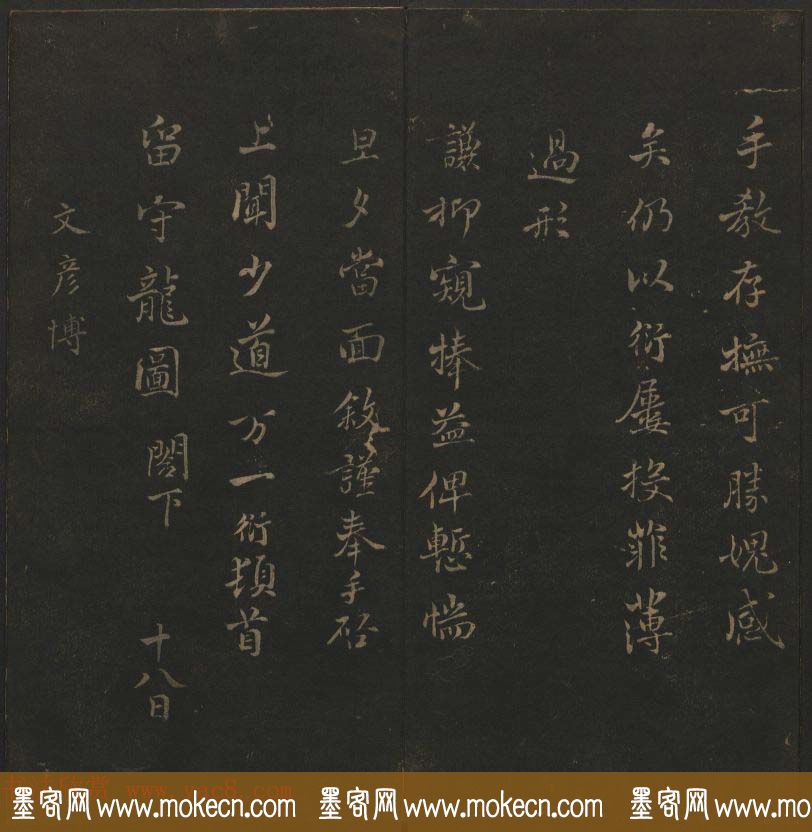 手教存撫可勝媿感
矣仍以衍屢投菲薄
過形
謙抑窺捧益俾慙惴
旦夕當面敘謹奉手啓
上聞少道万一衍頓首
留守龍圖 閤下 十八日
文彦博
书法欣赏 www.yac8.com
墨客网 www.mokecn.com 墨客网 www.mokecn.com 墨客网 www.mokecn.com